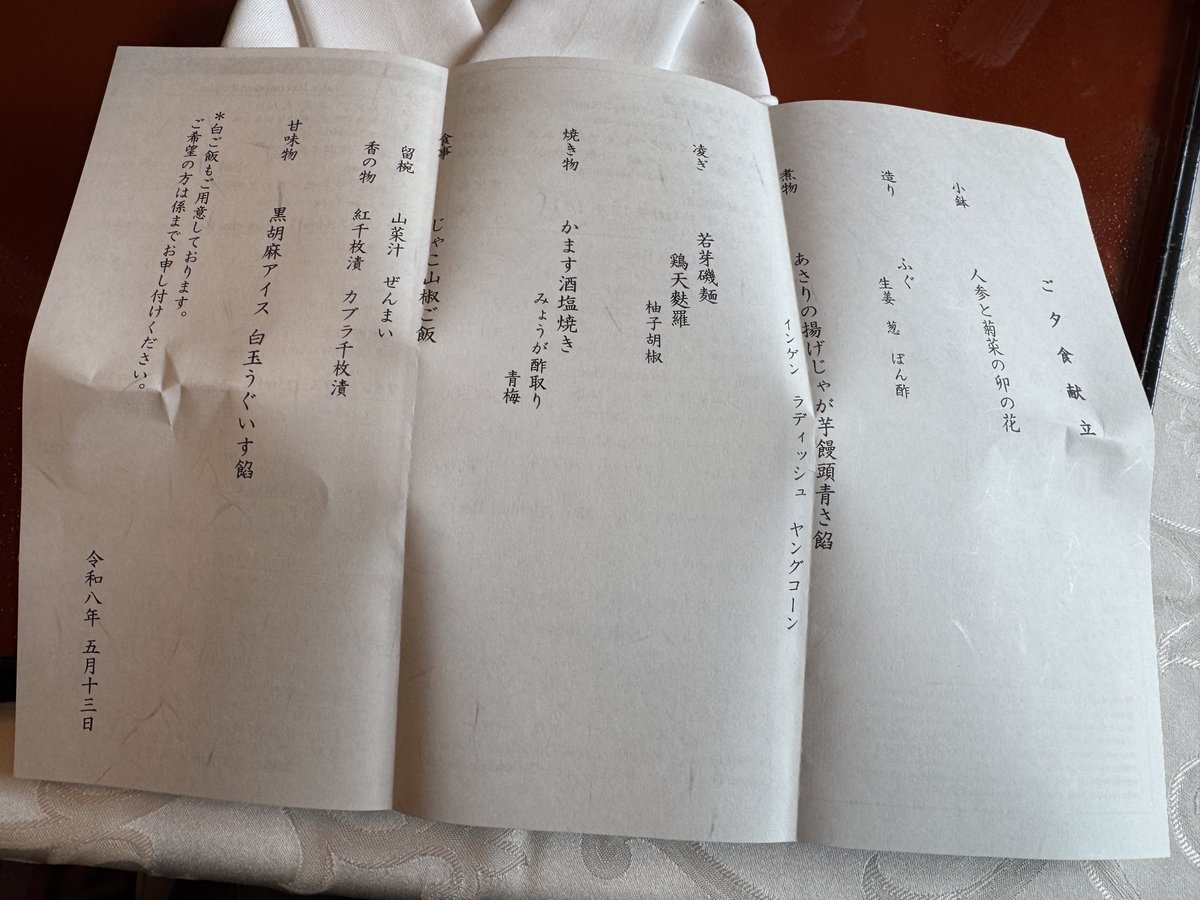 ご夕食献立
小鉢
人参と菊菜の卯の花
造り
ふぐ
生姜 葱 ぽん酢
煮物
あさりの揚げじゃが芋饅頭青さ餡
インゲン ラディッシュ ヤングコーン
凌ぎ
若芽磯麺
鶏天麩羅
柚子胡椒
焼き物
かます酒塩焼き
みょうが酢取り
青梅
食事
じゃこ山椒ご飯
留椀
山菜汁 ぜんまい
香の物
紅千枚漬 カブラ千枚漬
甘味物
黒胡麻アイス 白玉うぐいす餡
*白ご飯もご用意しております。
ご希望の方は係までお申し付けください。
令和八年 五月十三日